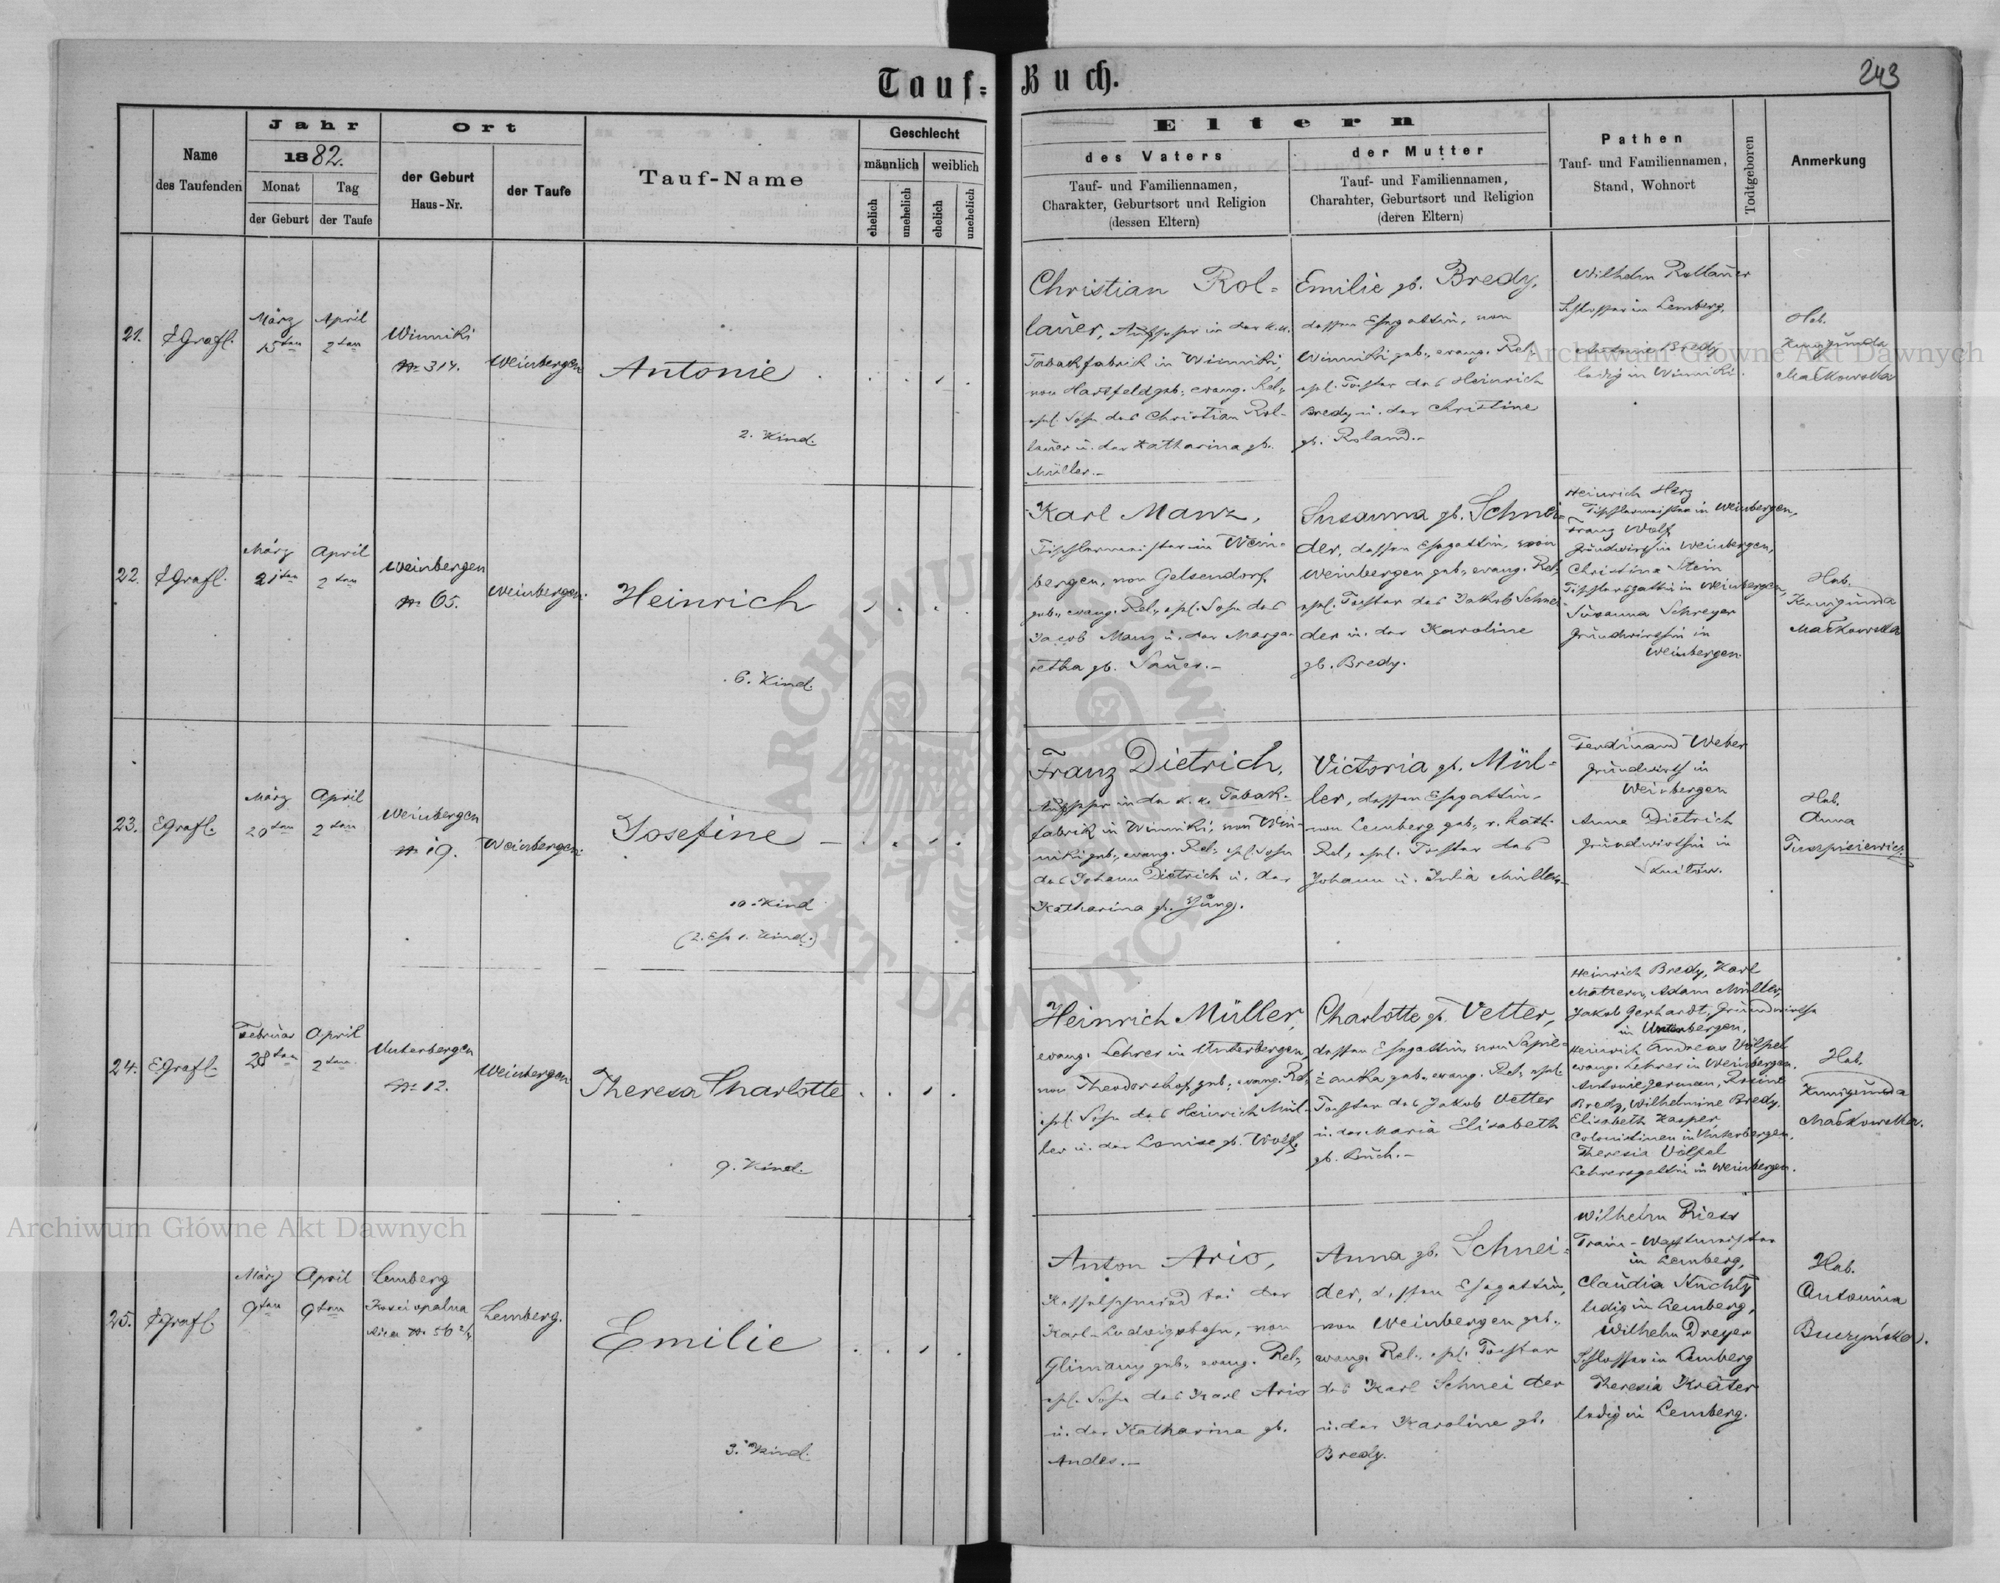 Tauf-Buch.
243
Name des Taufenden
Jahr
1882.
Monat
Tag
der Geburt
der Taufe
Ort
der Geburt
Haus-Nr.
der Taufe
Tauf-Name
Geschlecht
männlich
weiblich
ehelich
unehelich
ehelich
unehelich
Eltern
des Vaters
Tauf- und Familiennamen,
Charakter, Geburtsort und Religion
(dessen Eltern)
der Mutter
Tauf- und Familiennamen,
Charahter, Geburtsort und Religion
(deren Eltern)
Pathen
Tauf- und Familiennamen,
Stand, Wohnort
Todtgeboren
Anmerkung
21.
März
15ten
April
2ten
Winniki
No 314.
Weinbergen
Antonie
2. Kind.
Christian Rol-
lauer, Aufseher in der k.k.
Tabakfabrik in Winniki,
von Hartfeld geb., evang. Rel.,
ehel. Sohn des Christian Rol-
lauer u. der Katharina gb.
Müller.-
Emilie gb. Bredy,
dessen Ehegattin, von
Winniki geb., evang. Rel.,
ehel. Tochter des Heinrich
Bredy u. der Christine
gb. Roland.-
Wilhelm Rollauer
Schlosser in Lemberg,
Antonie Bredy
ledig in Winniki.
Heb.
Kunigunda
Małkowska
22.
März
21ten
April
2ten
Weinbergen
No 65.
Weinbergen.
Heinrich
6. Kind.
Karl Manz,
Tischlermeister in Wein-
bergen, von Gelsendorf
geb., evang. Rel., ehel. Sohn des
Jacob Manz u. der Marga-
retha gb. Sauer.-
Susanna gb. Schnei-
der, dessen Ehegattin, von
Weinbergen geb., evang. Rel.,
ehel. Tochter des Jakob Schnei-
der u. der Karoline
gb. Bredy.
Heinrich Herz
Tischlermeister in Weinbergen,
Franz Wolf,
Grundwirth in Weinbergen,
Christina Stein
Tischlersgattin in Weinbergen,
Susanna Schreyer
Grundwirthin in
Weinbergen.
Heb.
Kunigunda
Małkowska
23.
März
20ten
April
2ten
Weinbergen
No 19.
Weinbergen.
Josefine
10. Kind
(2. Ehe 1. Kind.)
Franz Dietrich,
Aufseher in der k. k. Tabak-
fabrik in Winniki, von Win-
niki geb., evang. Rel., ehel. Sohn
des Johann Dietrich u. der
Katharina gb. Jung.
Victoria gb. Mül-
ler, dessen Ehegattin,
von Lemberg geb., r. kath.
Rel., ehel. Tochter des
Johann u. Julia Müller.-
Ferdinand Weber
Grundwirth in
Weinbergen
Anna Dietrich
Grundwirthin in
Heb.
Anna
24.
Februar
28ten
April
2ten
Unterbergen
No 12.
Weinbergen
Theresa Charlotte
9. Kind.
Heinrich Müller,
evang. Lehrer in Unterbergen,
von Theodorshof geb., evang. Rel.,
ehel. Sohn des Heinrich Mül-
ler u. der Louise gb. Wolf.
Charlotte gb. Vetter,
dessen Ehegattin, von Sapie-
żanka geb., evang. Rel., ehel.
Tochter des Jakob Vetter
u. der Maria Elisabeth
gb. Buch.-
Heinrich Bredy, Karl
Mathern, Adam Müller,
Jakob Gerhardt, Grundwirthe
in Unterbergen,
Heinrich Andreas Völpel
evang. Lehrer in Weinbergen.
Antonie German, Rosine
Bredy, Wilhelmine Bredy,
Elisabeth Kasper,
Colonistinen in Unterbergen.
Theresia Völpel
Lehrersgattin in Weinbergen.
Heb.
Kunigunda
Małkowska.
25.
März
9ten
April
9ten
Lemberg
Lemberg.
Emilie
3. Kind.
Anton Ario,
Kesselschmied bei der
Karl-Ludwigsbahn, von
geb., evang. Rel.,
ehel. Sohn des Karl Ario
u. der Katharina gb.
Andes.-
Anna gb. Schnei-
der, dessen Ehegattin,
von Weinbergen geb.,
evang. Rel., ehel. Tochter
des Karl Schneider
u. der Karoline gb.
Bredy.
Wilhelm Riess
Train-Wachtmeister
in Lemberg,
Claudia
ledig in Lemberg,
Wilhelm Dreyer
Schlosser in Lemberg
Theresia Kräter
ledig in Lemberg.
Heb.
Antonina
Buczyńska.
Archiwum Główne Akt Dawnych
Archiwum Główne Akt Dawnych
ARCHIWUM GŁÓWNE AKT DAWNYCH